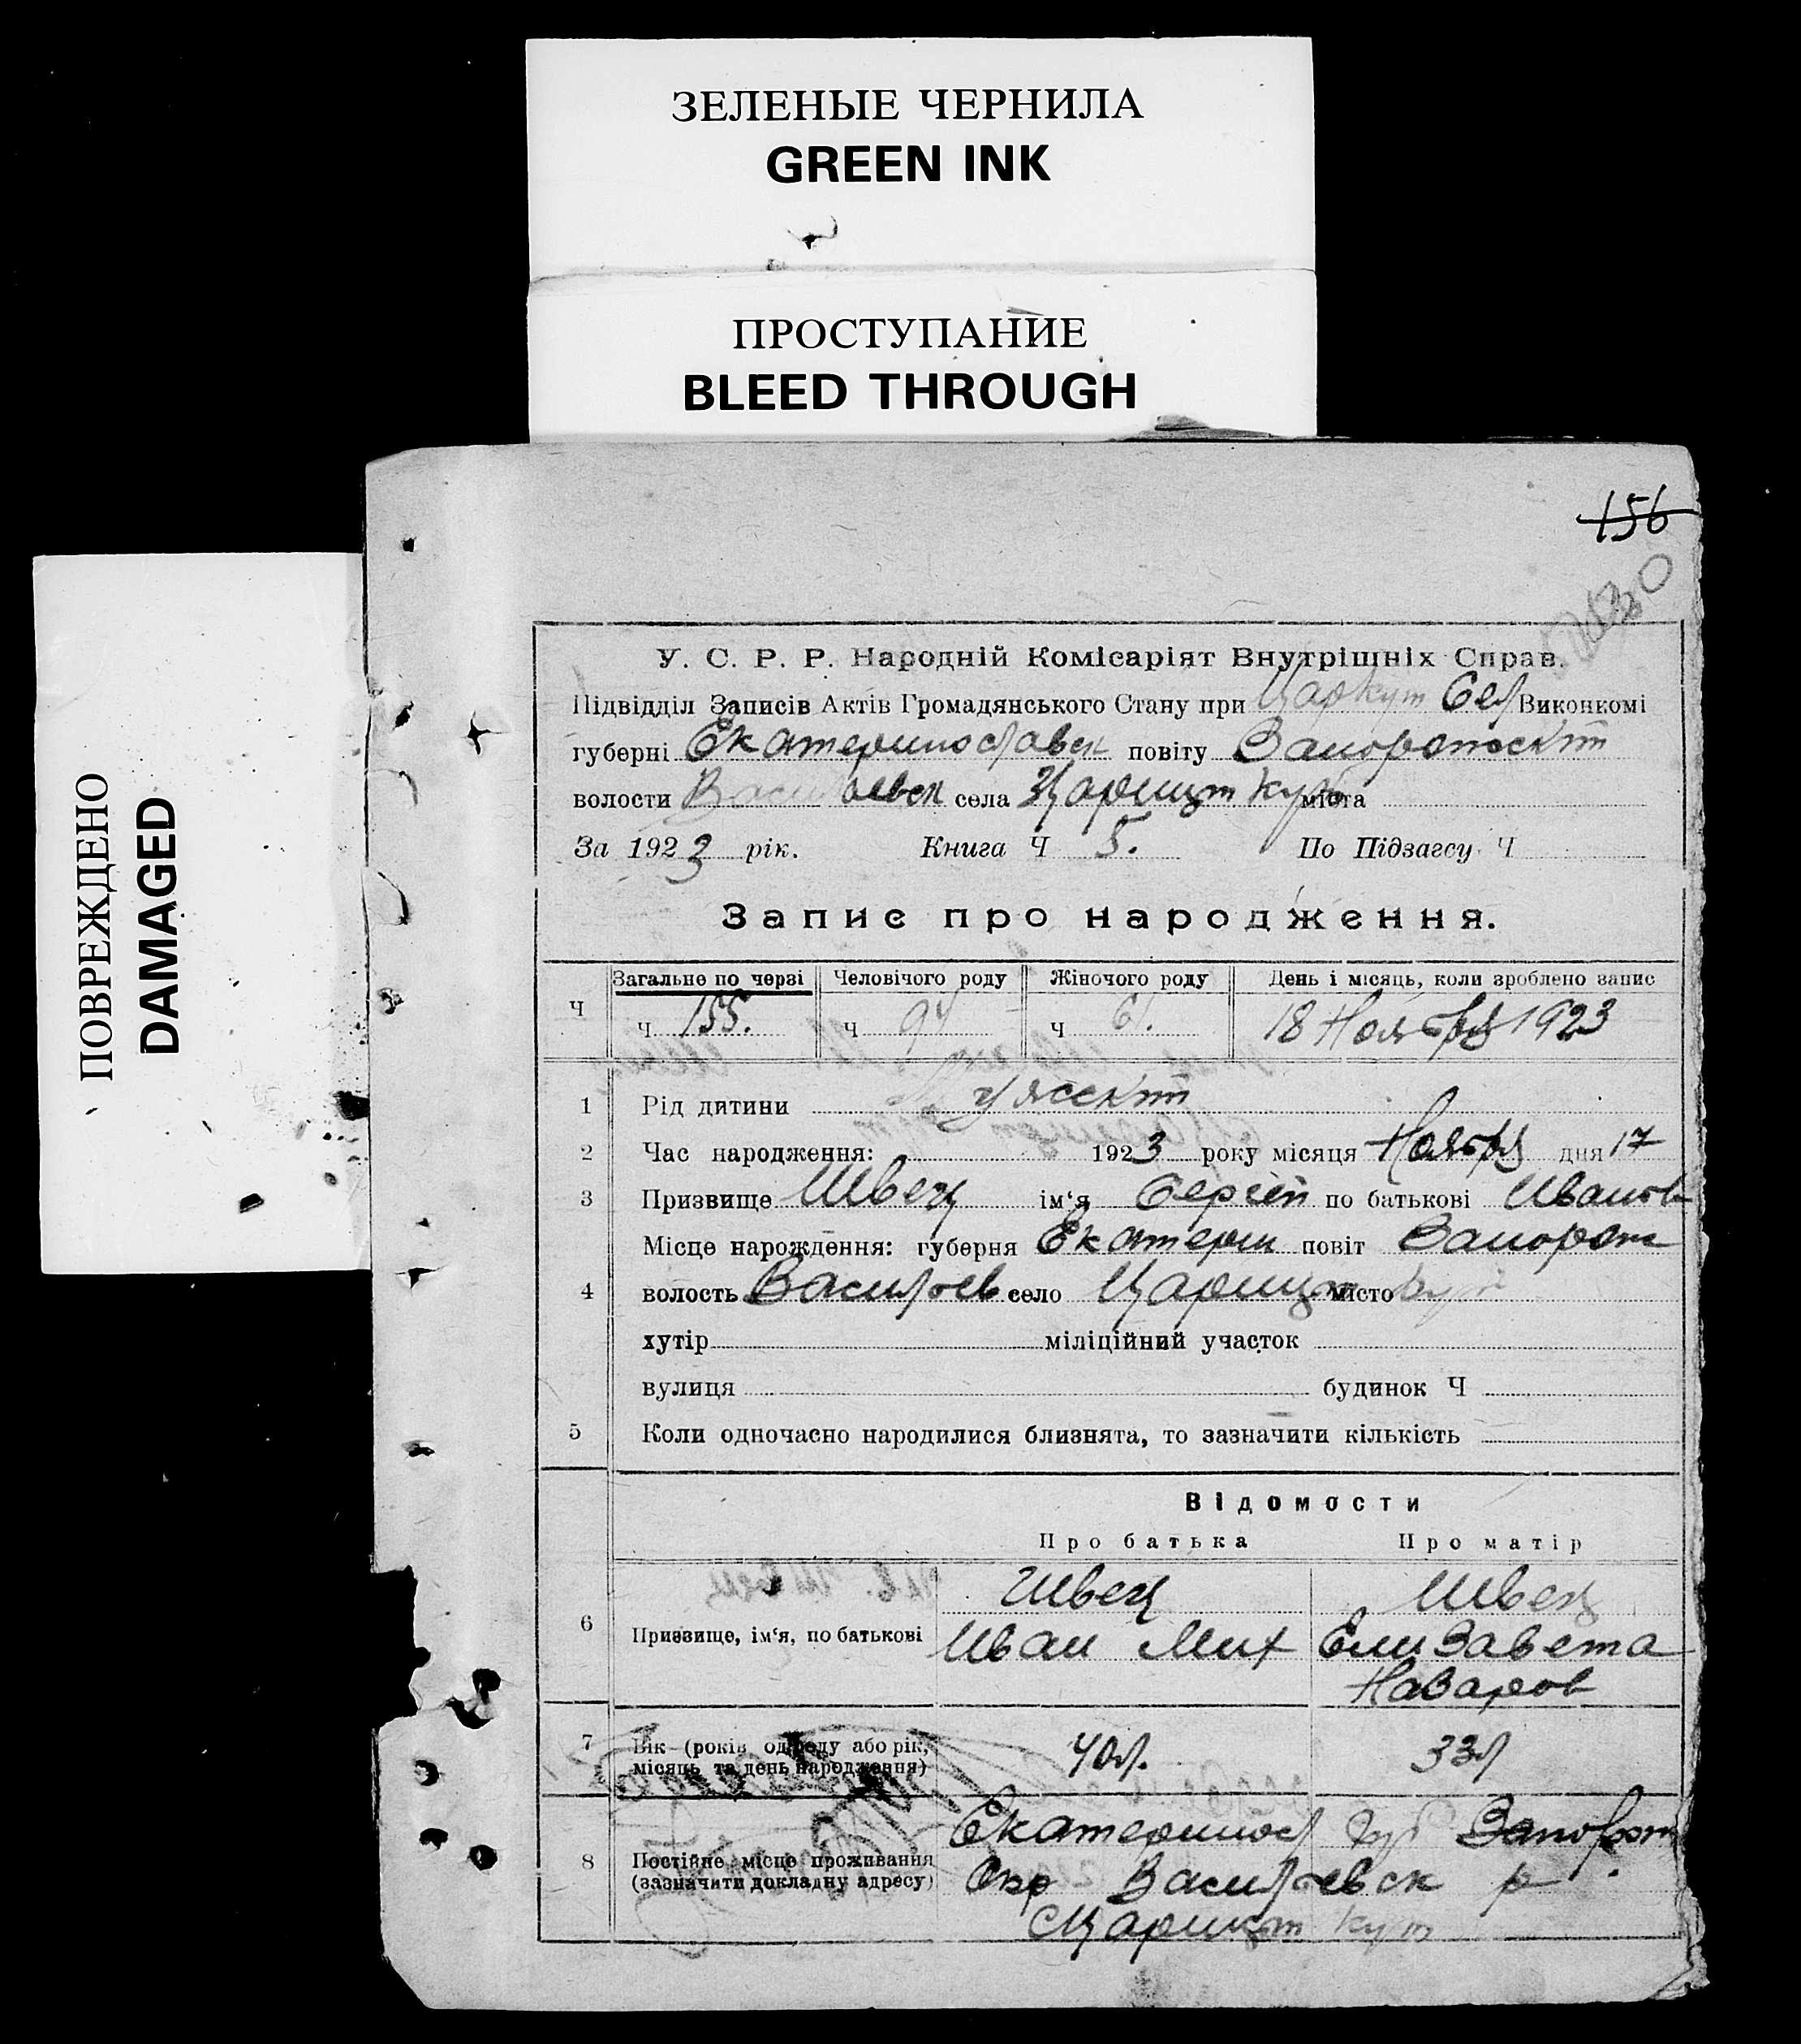 ЗЕЛЕНЫЕ ЧЕРНИЛА
GREEN INK
ПРОСТУПАНИЕ
BLEED THROUGH
ПОВРЕЖДЕНО
DAMAGED
156
У. С. Р. Р. Народній Комісаріят Внутрішніх Справ.
Підвідділ Записів Актів Громадянського Стану при Царкут Сел Виконкомі
губерні Екатеринославск повіту
волости Василевск села Царицын Кут міста
За 1923 рік. Книга Ч 5. По Підзагсу Ч
Запис про народження.
Загальне по черзі Человічого роду Жіночого роду День і місяць, коли зроблено запис
Ч Ч 155. Ч 94 Ч 61. 18 Ноября 1923
1 Рід дитини
2 Час народження: 1923 року місяця Ноября дня 17
3 Призвище Швец ім'я Сергей по батькові Иванов
Місце народження: губерня Екатерин повіт Запорож
4 волость Василев село Царицын місто Кут
хутір міліційний участок
вулиця будинок Ч
5 Коли одночасно народилися близнята, то зазначити кількість
Відомости
Про батька Про матір
Швец Швец
6 Призвище, ім'я, по батькові Иван Мих Елизавета
Назаров
7 Вік (років од роду або рік, 40 л. 33 л
місяць та день народження)
Екатеринос губ Запорож
8 Постійне місце проживання Окр Василевск р
(зазначити докладну адресу)
Царицын Кут